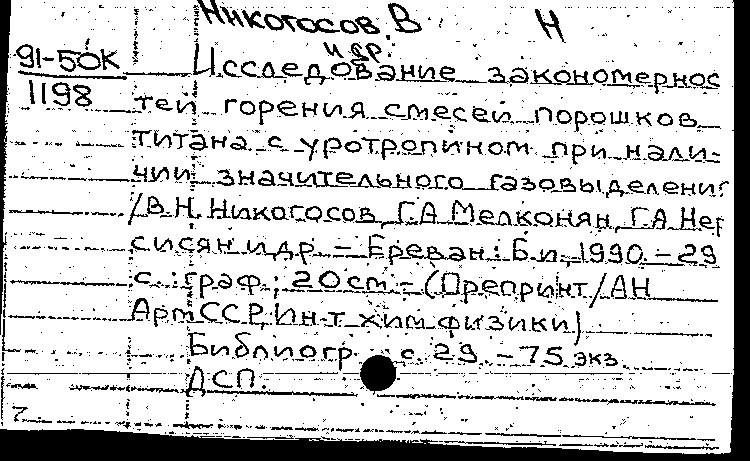 Никогосов, В Н
и др.
91-50К
1198
Исследование закономернос
тей горения смесей порошков
титана с уротропином при нали-
чии значительного газовыделения
/В.Н. Никогосов, Г.А. Мелконян, Г.А. Нер
сисян и др. – Ереван: Б.и., 1990. – 29
с.: граф.; 20 см. – (Препринт/АН
АрмССР, Ин-т хим. физики)
Библиогр. с. 29. – 75 экз.
ДСП.